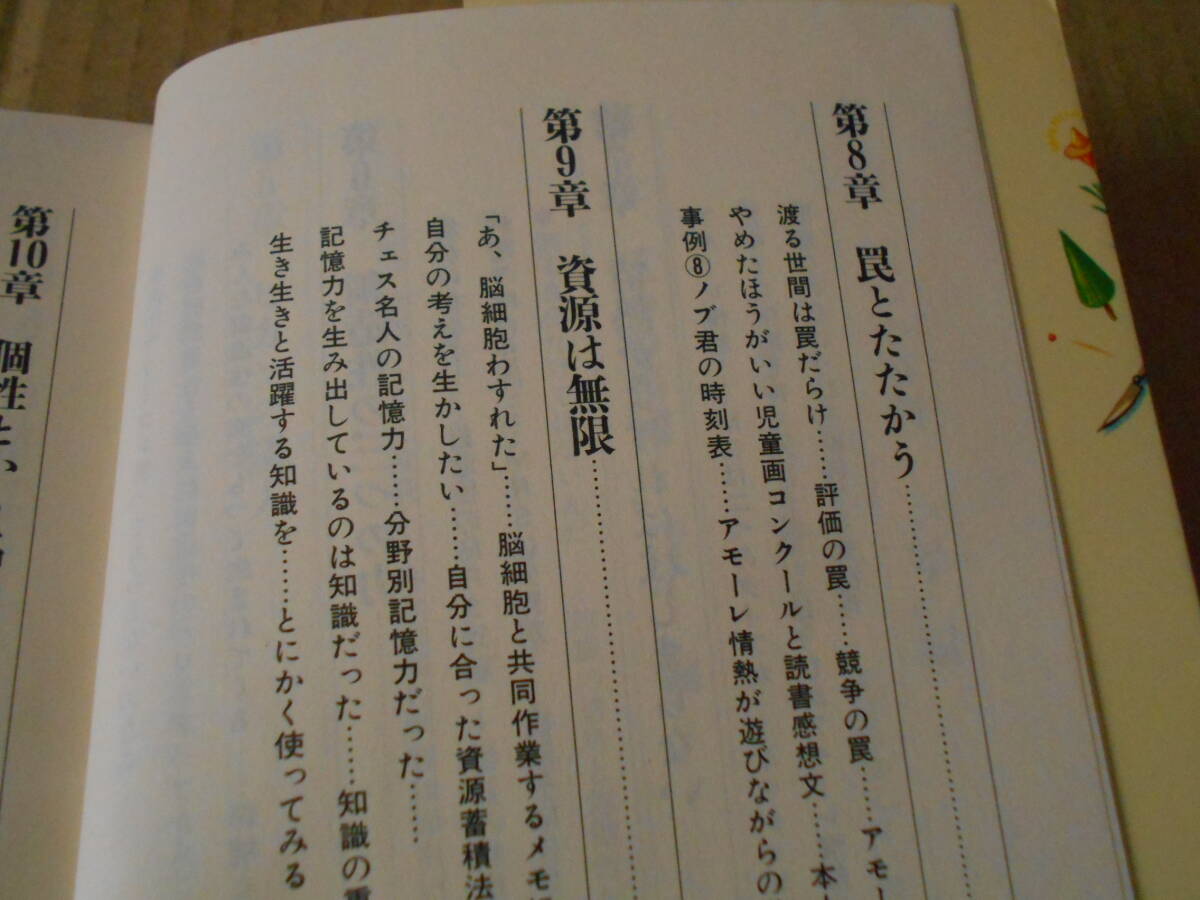 第8章 罠とたたかう……………………
渡る世間は罠だらけ……評価の罠……競争の罠……アモー
やめたほうがいい児童画コンクールと読書感想文……本
事例⑧ノブ君の時刻表……アモーレ情熱が遊びながらの
第9章 資源は無限……………………
「あ、脳細胞わすれた」……脳細胞と共同作業するメモ
自分の考えを生かしたい……自分に合った資源蓄積法
チェス名人の記憶力……分野別記憶力だった……
記憶力を生み出しているのは知識だった……知識の
生き生きと活躍する知識を……とにかく使ってみる
第10章 個性